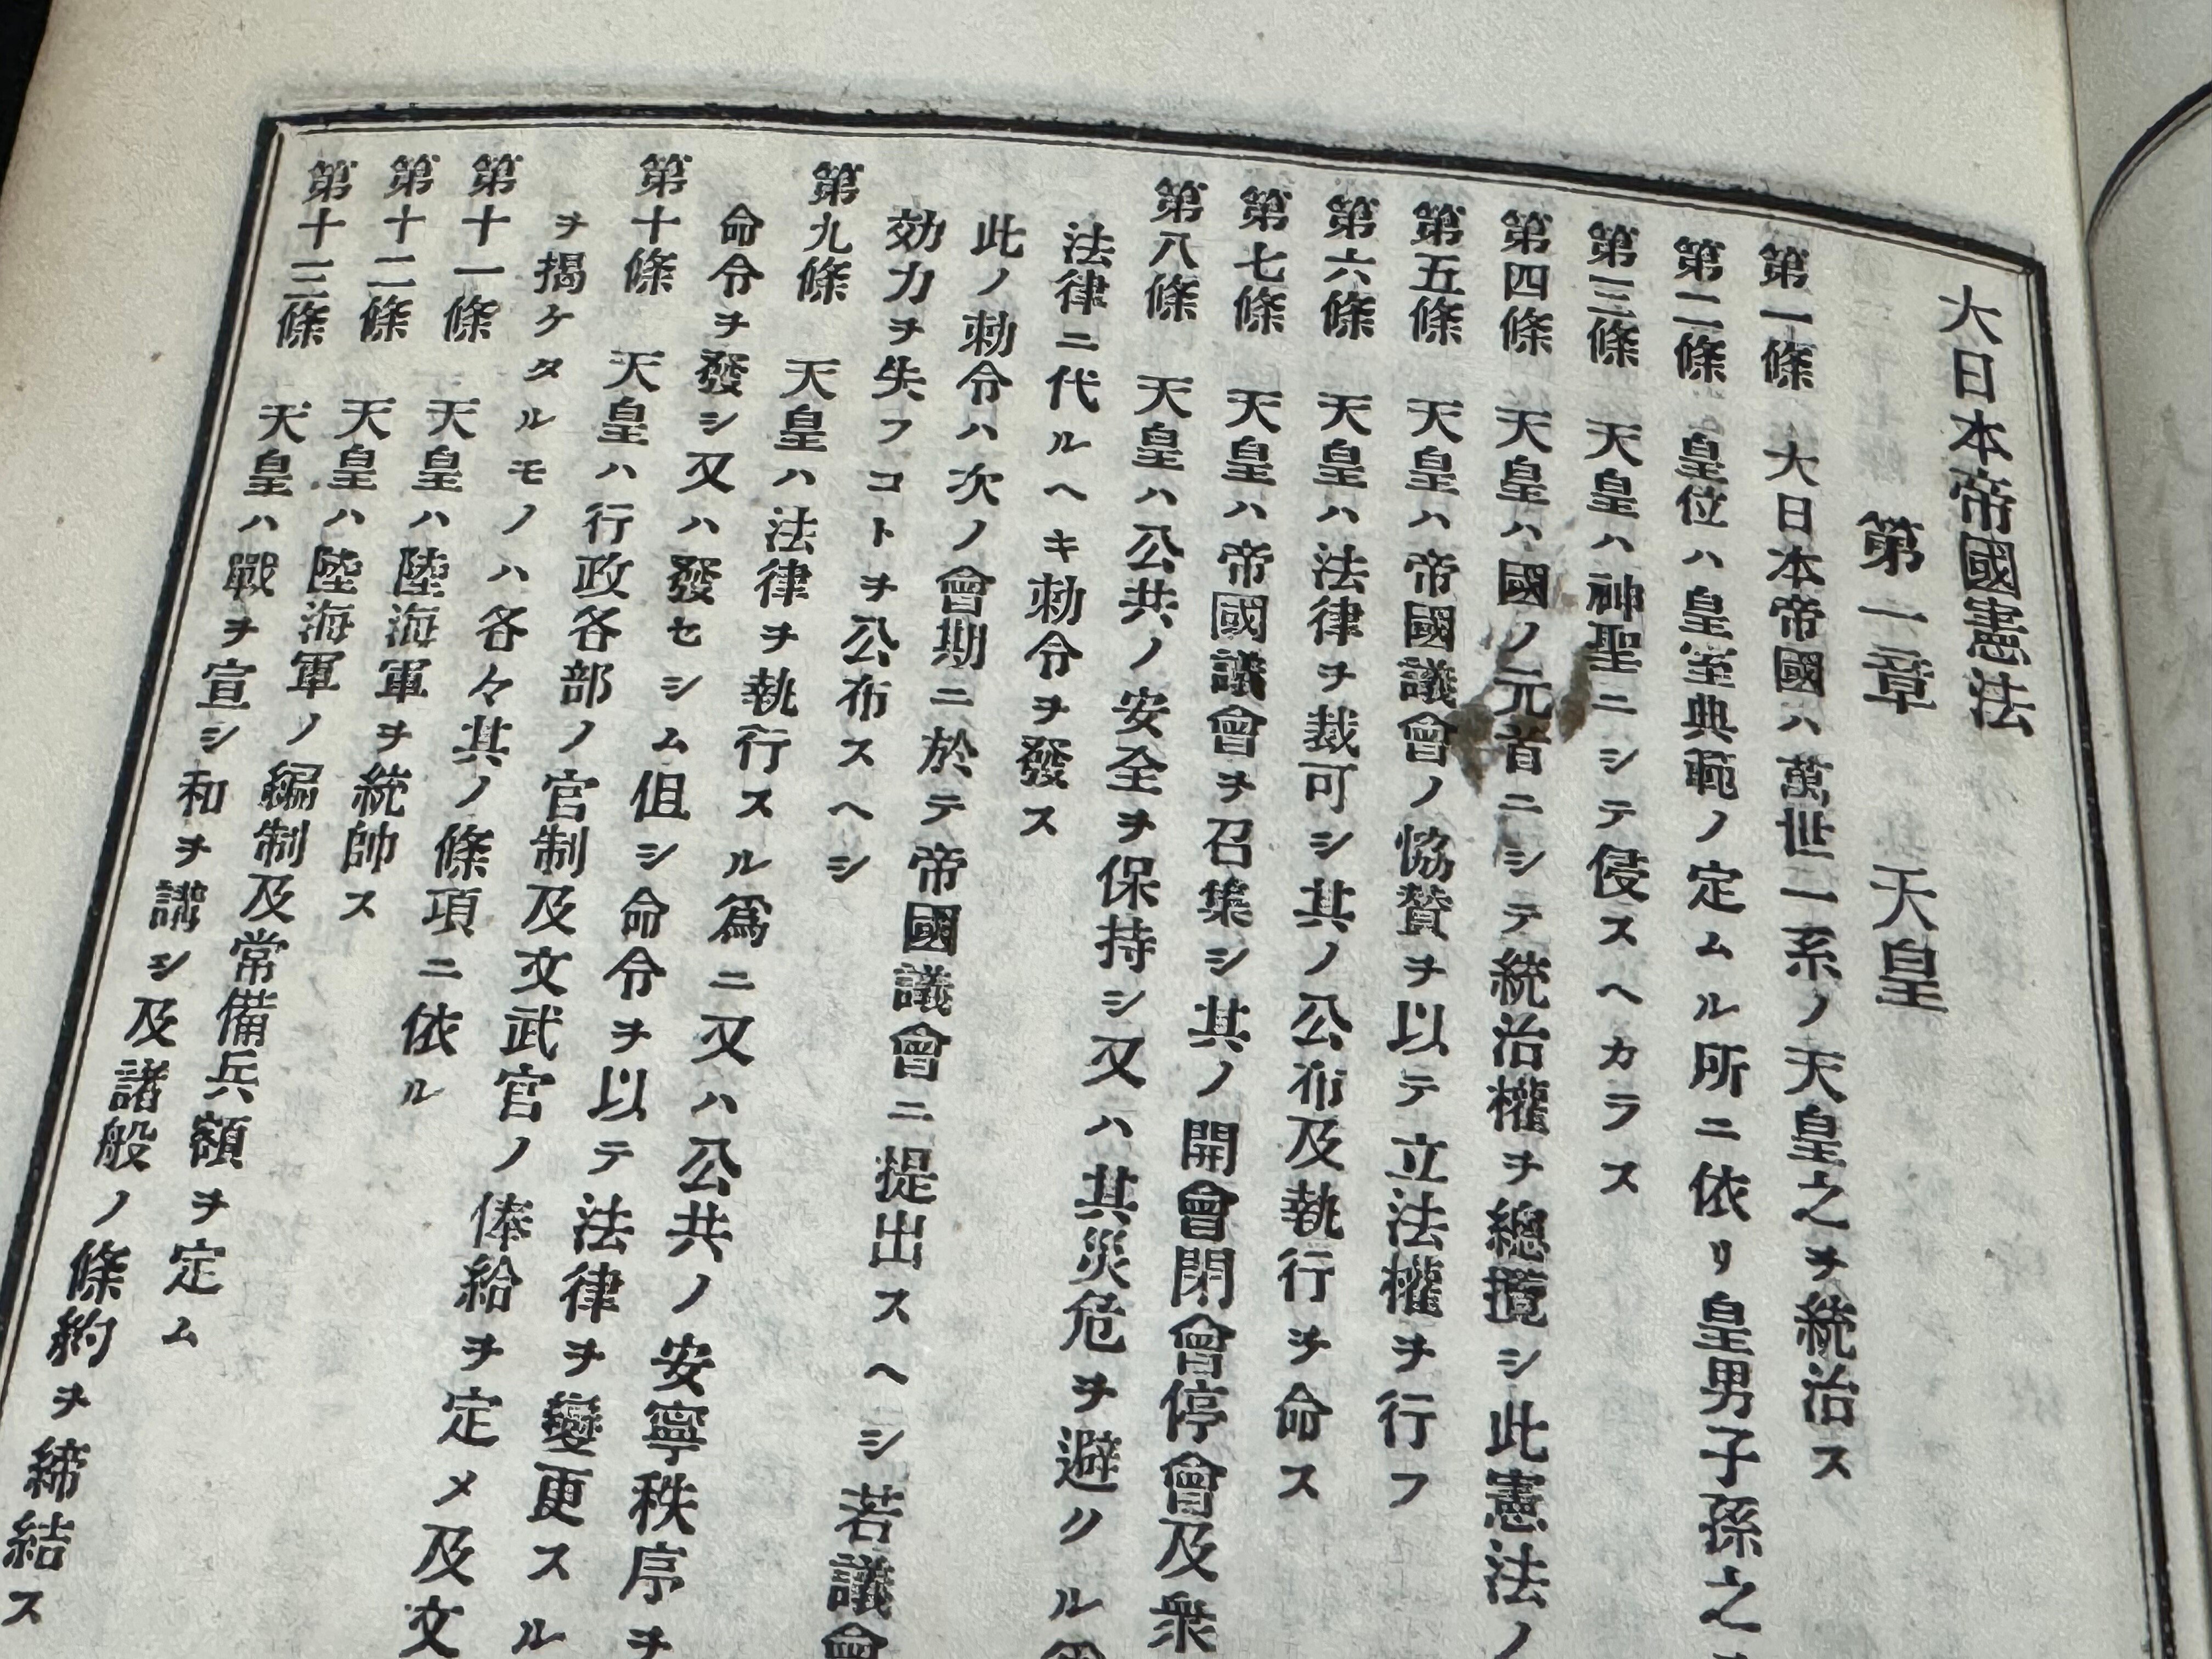 大日本帝國憲法
第一章 天皇
第一條 大日本帝國ハ萬世一系ノ天皇之ヲ統治ス
第二條 皇位ハ皇室典範ノ定ムル所ニ依リ皇男子孫之
第三條 天皇ハ神聖ニシテ侵スヘカラス
第四條 天皇ハ國ノ元首ニシテ統治權ヲ總攬シ此憲法ノ
第五條 天皇ハ帝國議會ノ恊賛ヲ以テ立法權ヲ行フ
第六條 天皇ハ法律ヲ裁可シ其ノ公布及執行ヲ命ス
第七條 天皇ハ帝國議會ヲ召集シ其ノ開會閉會停會及衆
第八條 天皇ハ公共ノ安全ヲ保持シ又ハ其災危ヲ避クル
法律ニ代ルヘキ勅令ヲ發ス
此ノ勅令ハ次ノ會期ニ於テ帝國議會ニ提出スヘシ若議會
効力ヲ失フコトヲ公布スヘシ
第九條 天皇ハ法律ヲ執行スル爲ニ又ハ公共ノ安寧秩序ヲ
命令ヲ發シ又ハ發セシム伹シ命令ヲ以テ法律ヲ變更スル
第十條 天皇ハ行政各部ノ官制及文武官ノ俸給ヲ定メ及文
ヲ揭ケタルモノハ各々其ノ條項ニ依ル
第十一條 天皇ハ陸海軍ヲ統帥ス
第十二條 天皇ハ陸海軍ノ編制及常備兵額ヲ定ム
第十三條 天皇ハ戰ヲ宣シ和ヲ講シ及諸般ノ條約ヲ締結ス